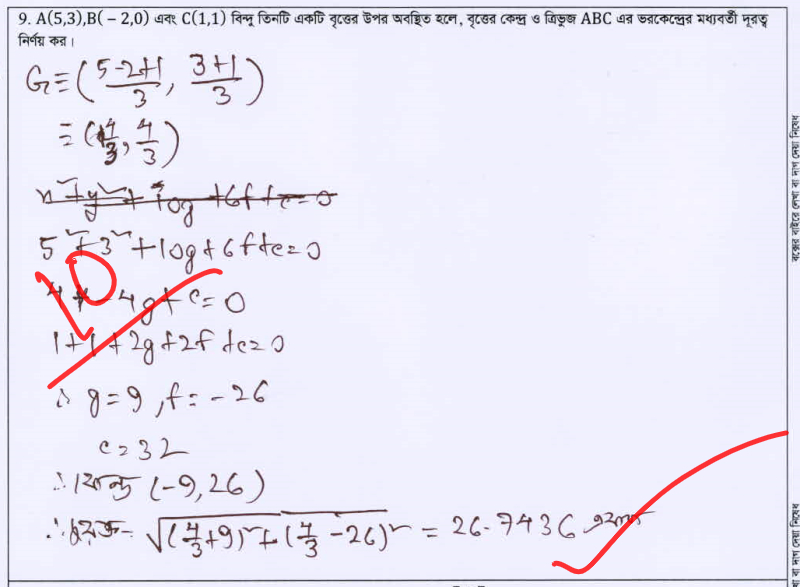 9. A(5,3),B( – 2,0) এবং C(1,1) বিন্দু তিনটি একটি বৃত্তের উপর অবস্থিত হলে, বৃত্তের কেন্দ্র ও ত্রিভুজ ABC এর ভরকেন্দ্রের মধ্যবর্তী দূরত্ব
নির্ণয় কর।
G ≡ (5-2+1/3, 3+1/3)
≡ (4/3, 4/3)
x²+y²+10g+6f+c=0
5²+3²+10g+6f+c=0
10
4-4g+c=0
1+1+2g+2f+c=0
∴ g=9, f=-26
c=32
∴ কেন্দ্র (-9,26)
∴ দূরত্ব = √(4/3+9)²+(4/3-26)² = 26.7436 একক
বক্সের বাইরে লেখা বা দাগ দেয়া নিষেধ
বা দাগ দেয়া নিষেধ